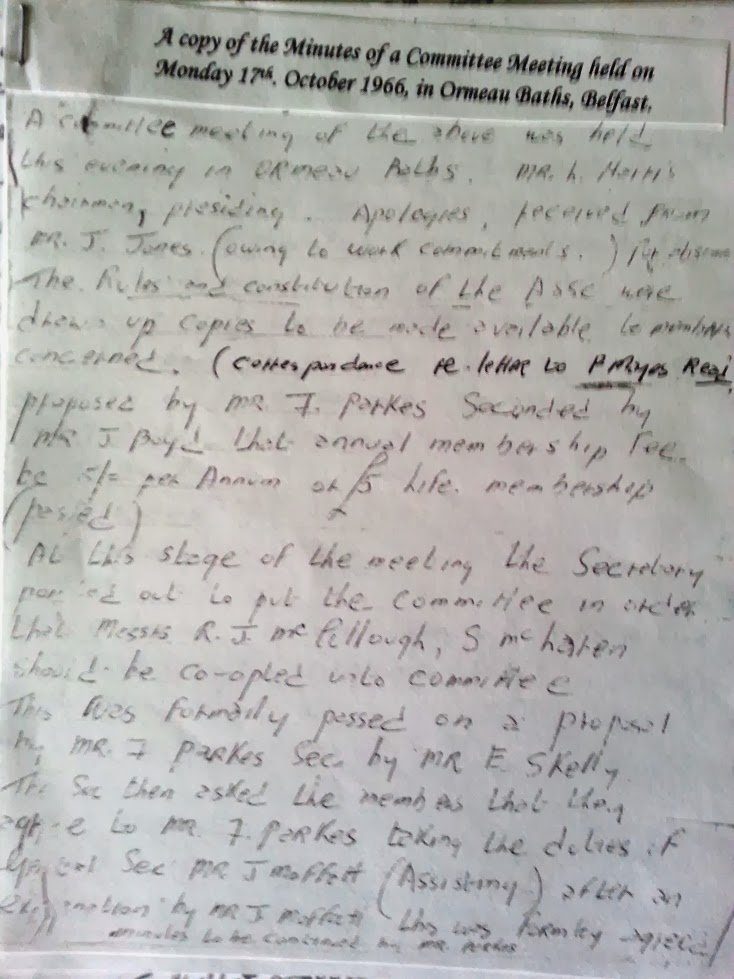 A copy of the Minutes of a Committee Meeting held on
Monday 17th. October 1966, in Ormeau Baths, Belfast.
A committee meeting of the above was held
this evening in ORmeau Baths. MR. h. Morris
chairman, presiding. Apologies, received from
MR. J. Jones. (owing to work commitments.) for absence
The Rules and constitution of the Assc were
drawn up copies to be made available to members
concerned. (correspondance re-letter to P Mayes Regi
proposed by MR 7. Parkes Seconded by
MR J Boyd that annual membership fee.
be 5/= per Annum or £5 Life. membership
(passed)
At this stage of the meeting the Secretary
pointed out to put the committee in order
that Messrs R. J McCullough, S McLaren
should be co-opted into committee
This was formally passed on a proposal
by MR. 7 Parkes Sec. by MR E Skelly.
The Sec then asked the members that they
agree to MR. 7. Parkes taking the duties of
Sec MR J Moffett (Assisting) after an
explanation by MR J Moffett this was formley agreed
minutes to be continued by MR. Parkes